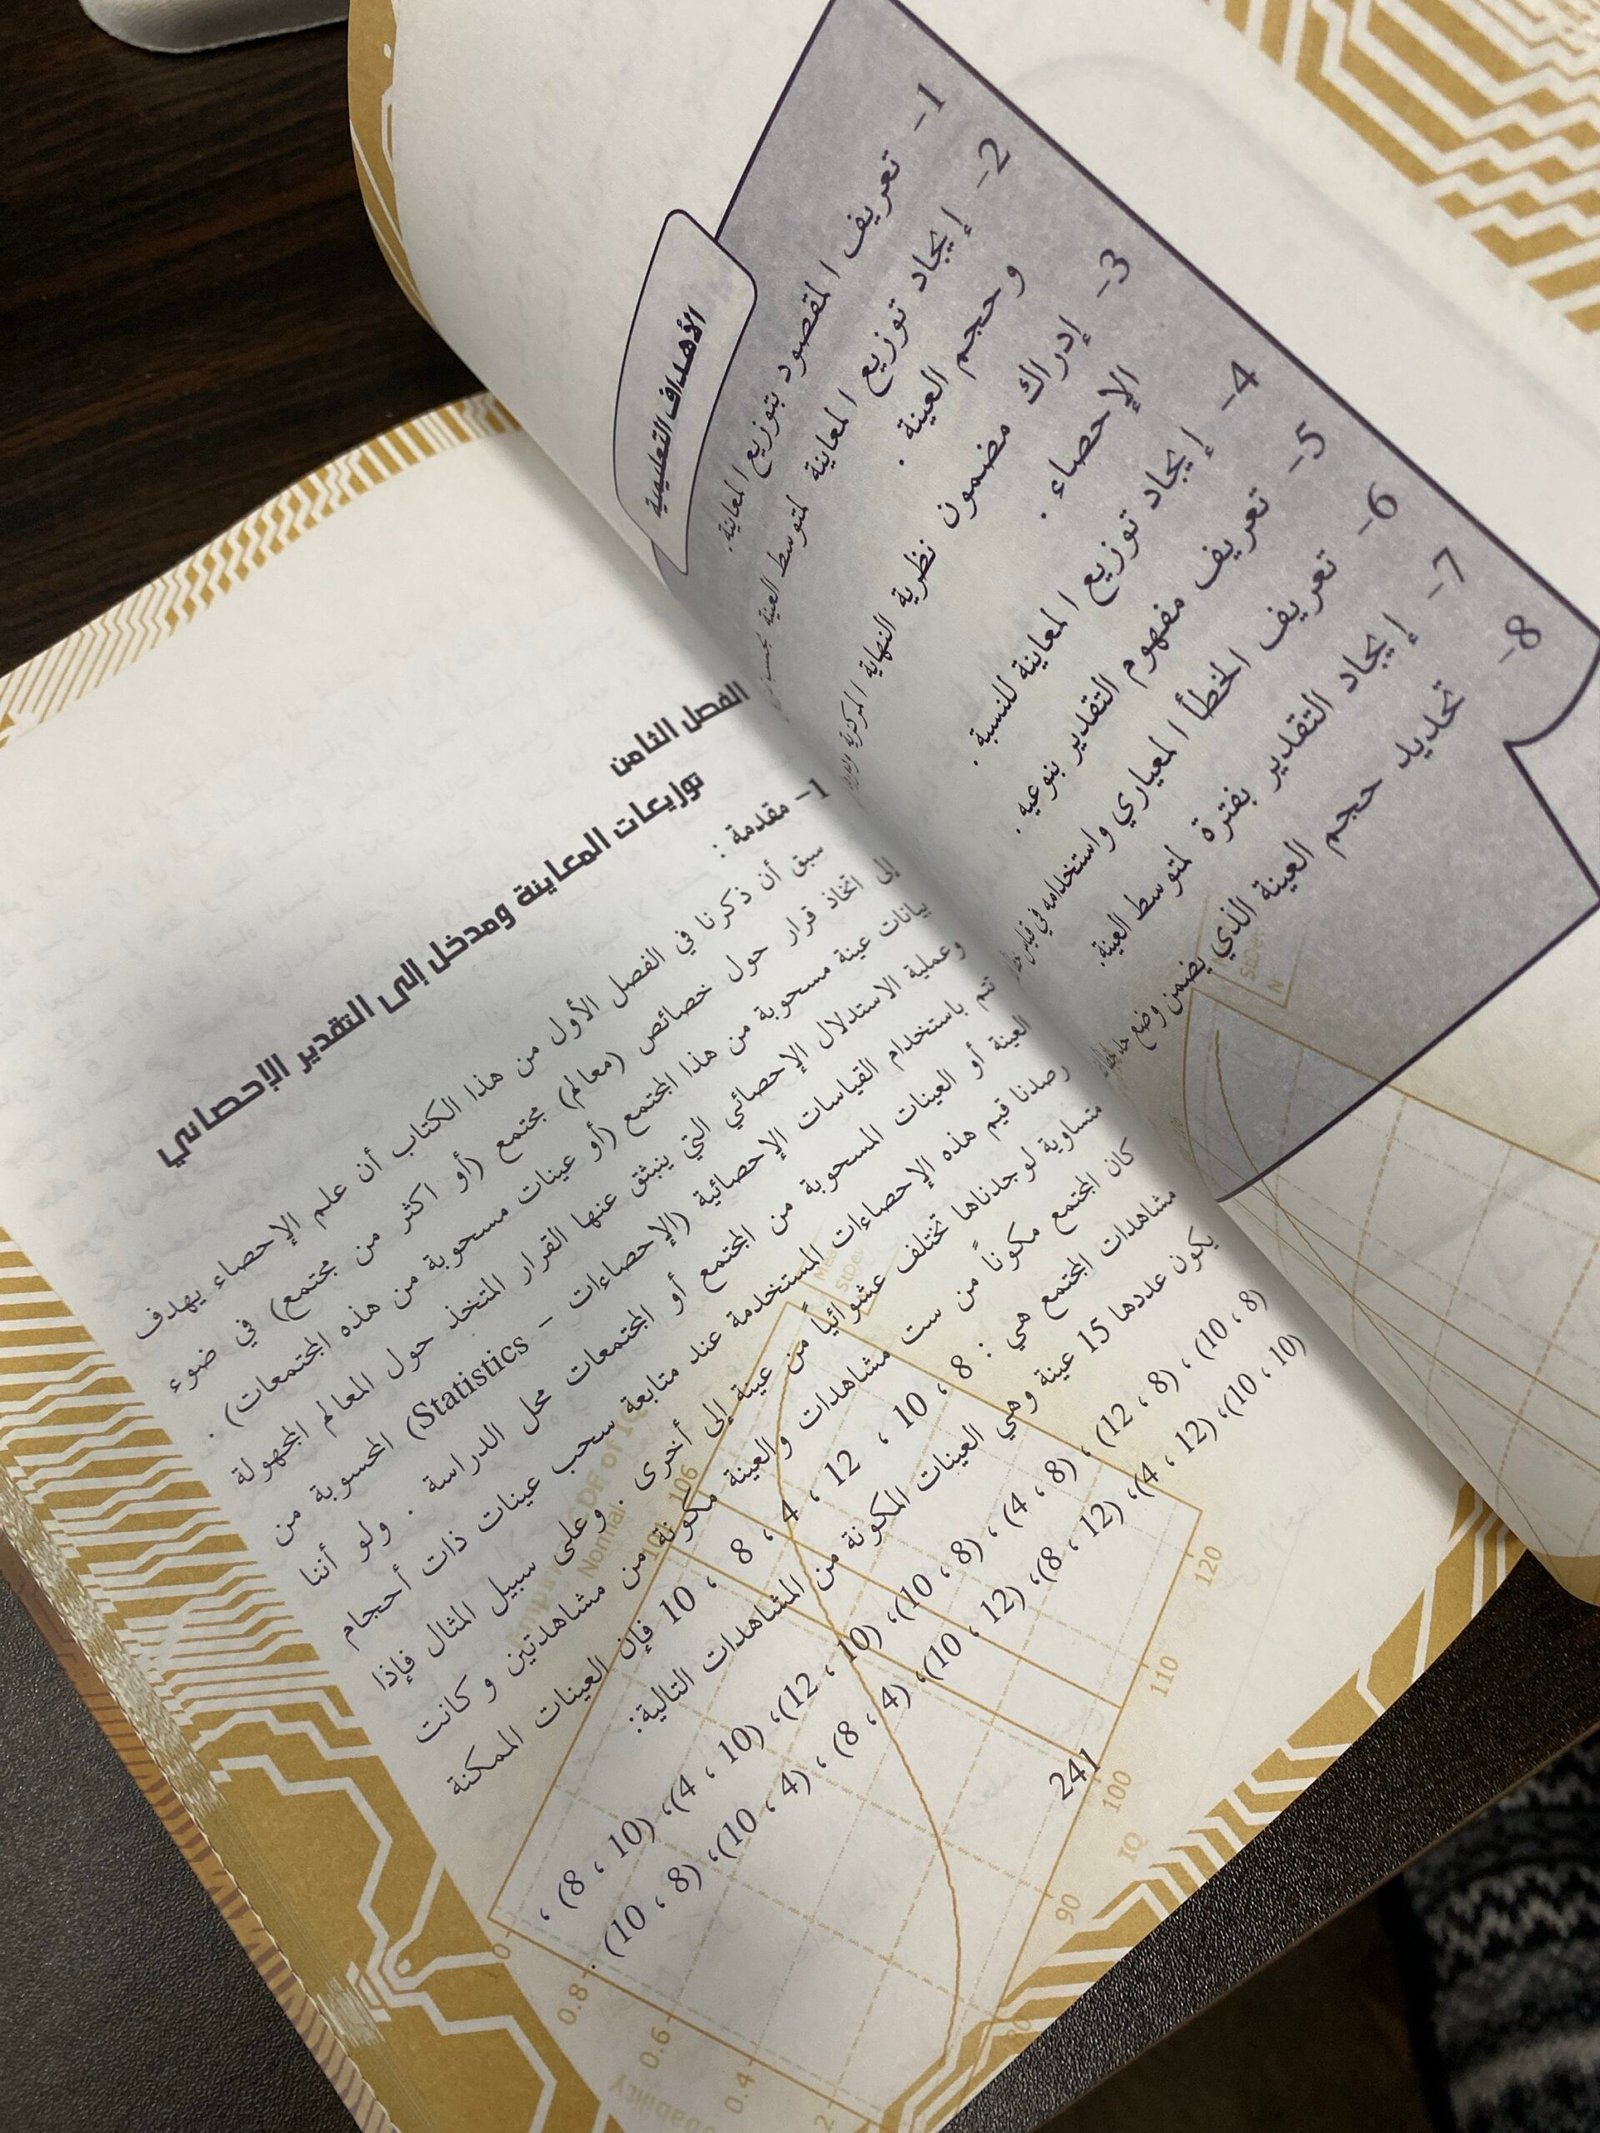 الأهداف التعليمية
1- تعريف المقصود بتوزيع المعاينة.
2- إيجاد توزيع المعاينة لمتوسط العينة
وحجم العينة .
3- إدراك مضمون نظرية النهاية المركزية
الإحصاء .
4- إيجاد توزيع المعاينة للنسبة .
5- تعريف مفهوم التقدير بنوعيه .
6- تعريف الخطأ المعياري واستخدامه في قياس
7- إيجاد التقدير بفترة لمتوسط العينة.
8- تحديد حجم العينة الذي يضمن وضع حد
StDev
N
الفصل الثامن
توزيعات المعاينة ومدخل إلى التقدير الإحصائي
1- مقدمة :
سبق أن ذكرنا في الفصل الأول من هذا الكتاب أن علم الإحصاء يهدف
إلى اتخاذ قرار حول خصائص (معالم) مجتمع (أو اكثر من مجتمع) في ضوء
بيانات عينة مسحوبة من هذا المجتمع (أو عينات مسحوبة من هذه المجتمعات) .
وعملية الاستدلال الإحصائي التي ينبثق عنها القرار المتخذ حول المعالم المجهولة
تتم باستخدام القياسات الإحصائية (الإحصاءات – Statistics) المحسوبة من
العينة أو العينات المسحوبة من المجتمع أو المجتمعات محل الدراسة . ولو أننا
رصدنا قيم هذه الإحصاءات المستخدمة عند متابعة سحب عينات ذات أحجام
متساوية لوجدناها تختلف عشوائياً من عينة إلى أخرى . وعلى سبيل المثال فإذا
كان المجتمع مكوناً من ست مشاهدات والعينة مكونة من مشاهدتين و كانت
مشاهدات المجتمع هي : 8 ، 10 ، 12 ، 4 ، 8 ، 10 فإن العينات الممكنة
يكون عددها 15 عينة وهي العينات المكونة من المشاهدات التالية:
(10 ، 8) ، (12 ، 8) ، (4 ، 8) ، (10 ، 8)، (12 ، 10)، (4 ، 10)، (8 ، 10) ،
(10 ، 10)، (4 ، 12)، (8 ، 12)، (10 ، 12)، (8 ، 4) ، (10 ، 4)، (10 ، 8) .
241
StDev
Normal
106
120
110
100
IQ
90
80
0.8
0.6
0.4